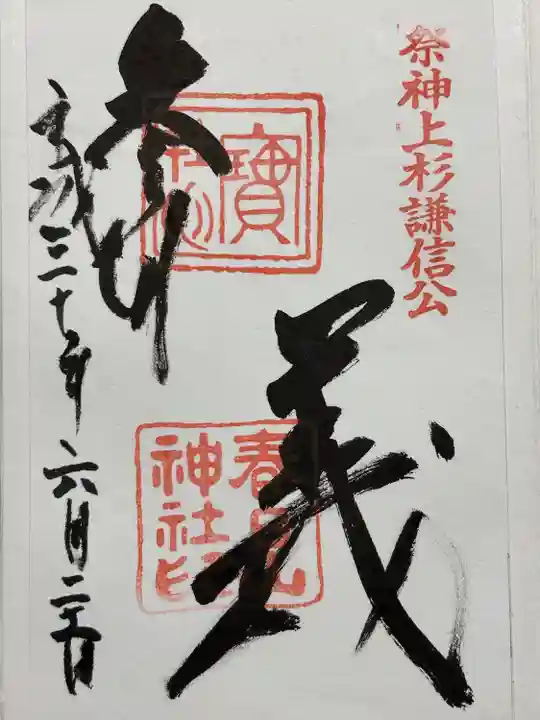 祭神上杉謙信公
義
春日山
神社印
寳
奉拝
平成三十年六月二十六日